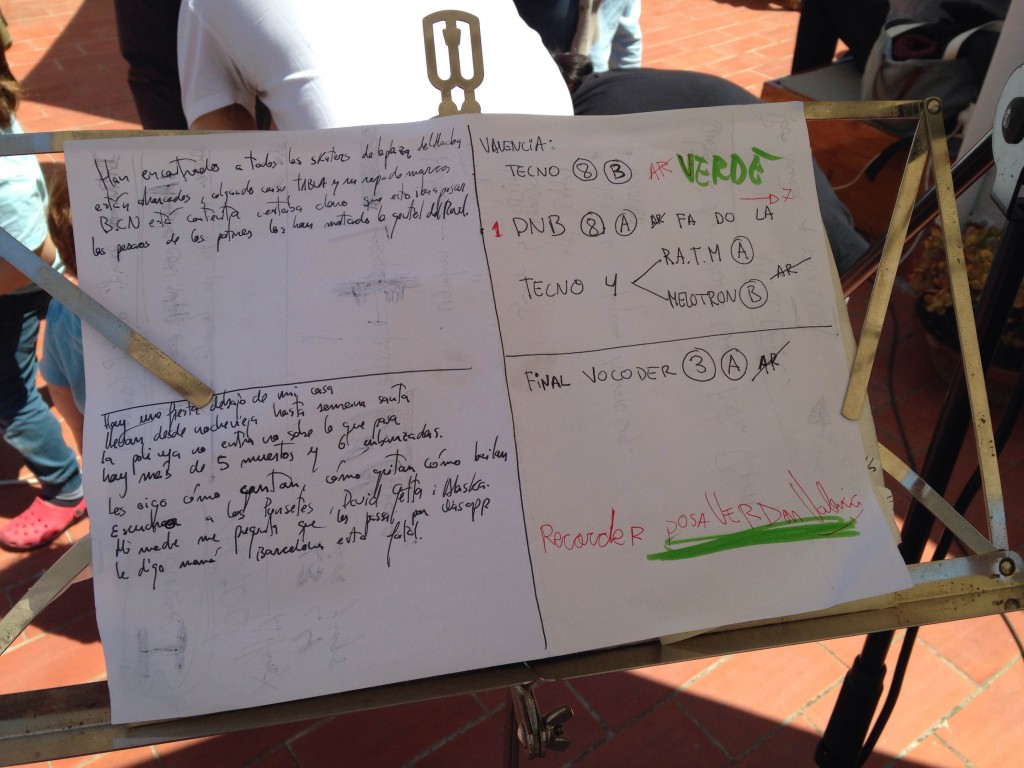 Han encontrado a todos los skaters de la plaza del
están y cuando cae TABLA y no
BCN está contenta estaba claro que esto iba a pasar
los pesaos de los patines los han matado la gente del Raval.
Hay una fiesta debajo de mi casa
llevan desde nochevieja hasta semana santa
la policia no entra no sabe lo que pasa
hay más de 5 muertos y 6 embarazadas.
Les oigo cómo gritan, cómo bailan
Escucho a los Ronsetes, David Getta i Alaska.
Mi madre me pregunta que les pasa por
le digo mamá Barcelona está fatal.
VALENCIA:
TECNO 8 B AR VERDE
1 DNB 8 A AR FA DO LA
TECNO 4
R.A.T.M A
MELOTRON B AR
FINAL VOCODER 3 A AR
Recorder POSA VERD an Valencia